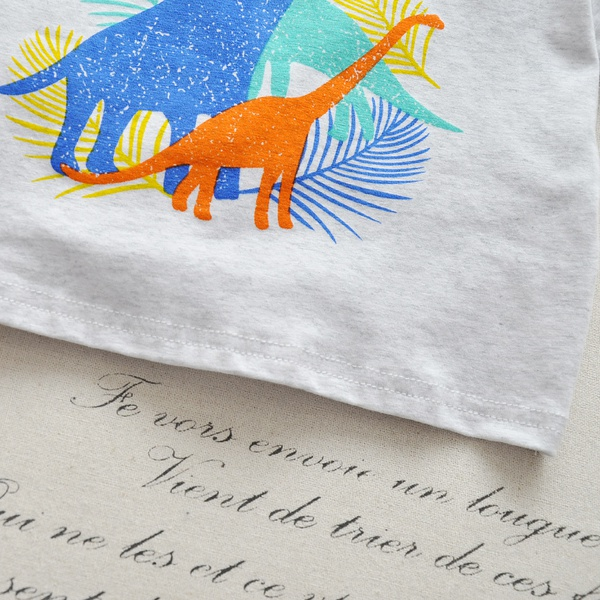 Fe vors envoie un lougue
Vient de trier de ces
ui ne les et ce
sent